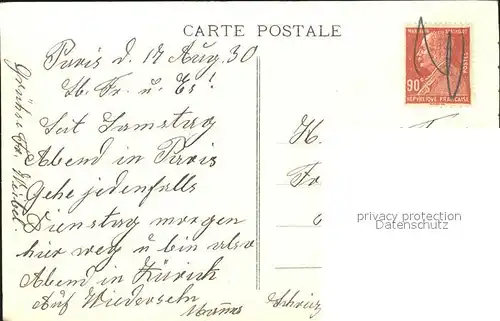 CARTE POSTALE
Paris d. 17 Aug. 30
Lb. Fr. u. Es!
Seit Samstag
Abend in Paris
Gehe jedenfalls
Dienstag morgen
hier weg u bin also
Abend in Zürich
Auf Wiedersehn
Grüße Fr.
90
POSTES
REPUBLIQUE FRANÇAISE
H.
Fr
privacy protection
Datenschutz
Schweiz